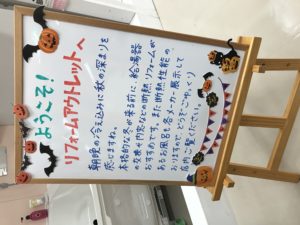 ようこそ!
リフォームアウトレットへ
朝晩の冷え込みに秋の深まりを
感じますね。
本格的な冬が来る前に、給湯器
の交換や内窓などの断熱リフォームが
おすすめです。また断熱性能の
あるお風呂も各メーカー展示して
おりますので、どうぞごゆっくり
店内ご覧ください。